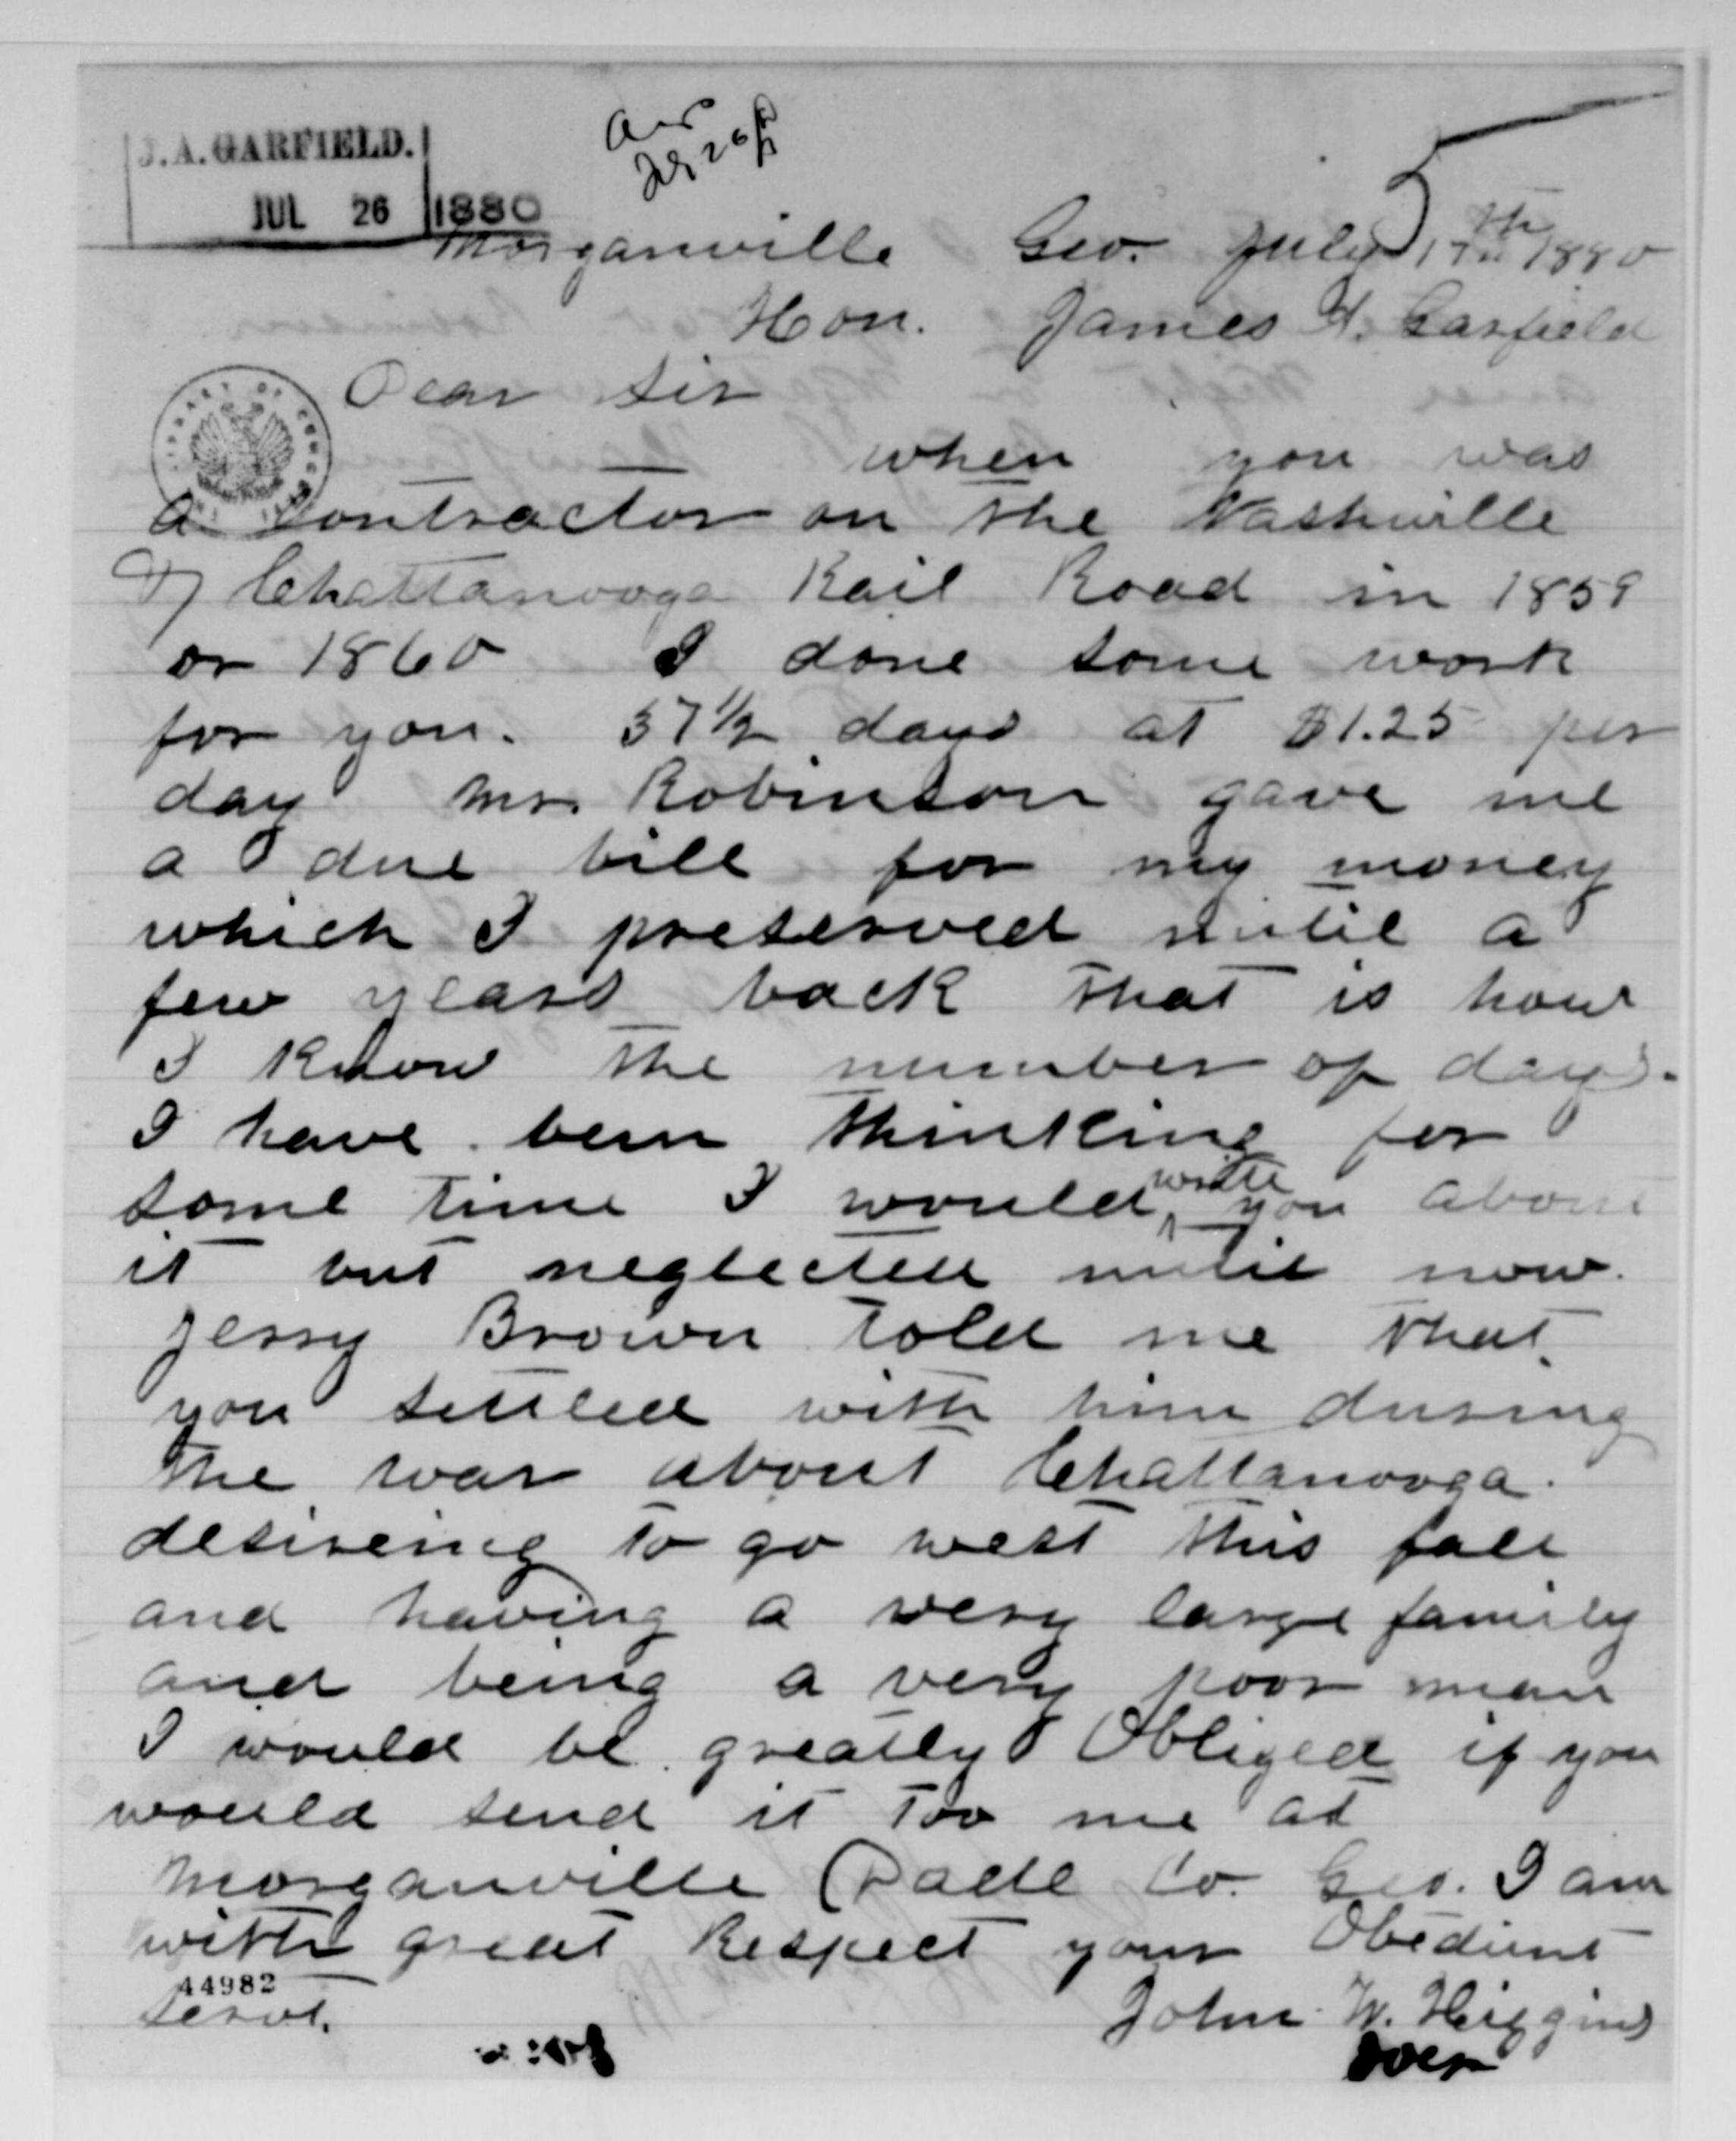 J. A. GARFIELD.
JUL 26 1880
Ans
July 26
Morganville Geo. July 17th 1880
Hon. James A. Garfield
Dear Sir
LIBRARY OF CONGRESS
when you was
a contractor on the Nashville
& Chattanooga Rail Road in 1859
or 1860 I done some work
for you. 37½ days at $1.25 per
day Mr. Robinson gave me
a due bill for my money
which I preserved until a
few years back that is how
I know the number of days.
I have been thinking for
some time I would write you about
it but neglected until now.
Jerry Brown told me that
you settled with him during
the war about Chattanooga.
desireing to go west this fall
and having a very large family
and being a very poor man
I would be greatly Obliged if you
would send it too me at
Morganville Dade Co. Geo. I am
with great Respect your Obedient
44982
Servt.
John W. Higgins
over